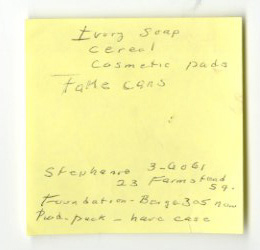 Ivory Soap
cereal
cosmetic pads
Take cans
Stephanie 3-6061
23 Farmstead
Sq.
Foundation - Beige 305 now
Pwd. pack - have case